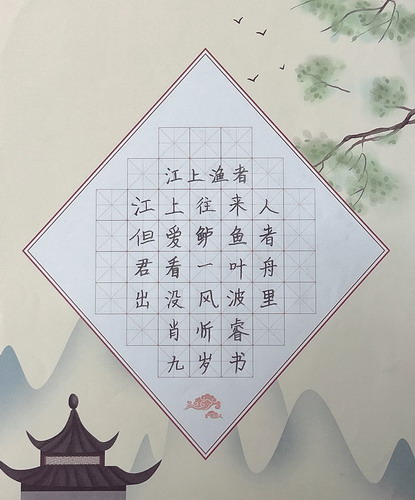 江上渔者
江上往来人
但爱鲈鱼者
君看一叶舟
出没风波里
肖昕睿
九岁书